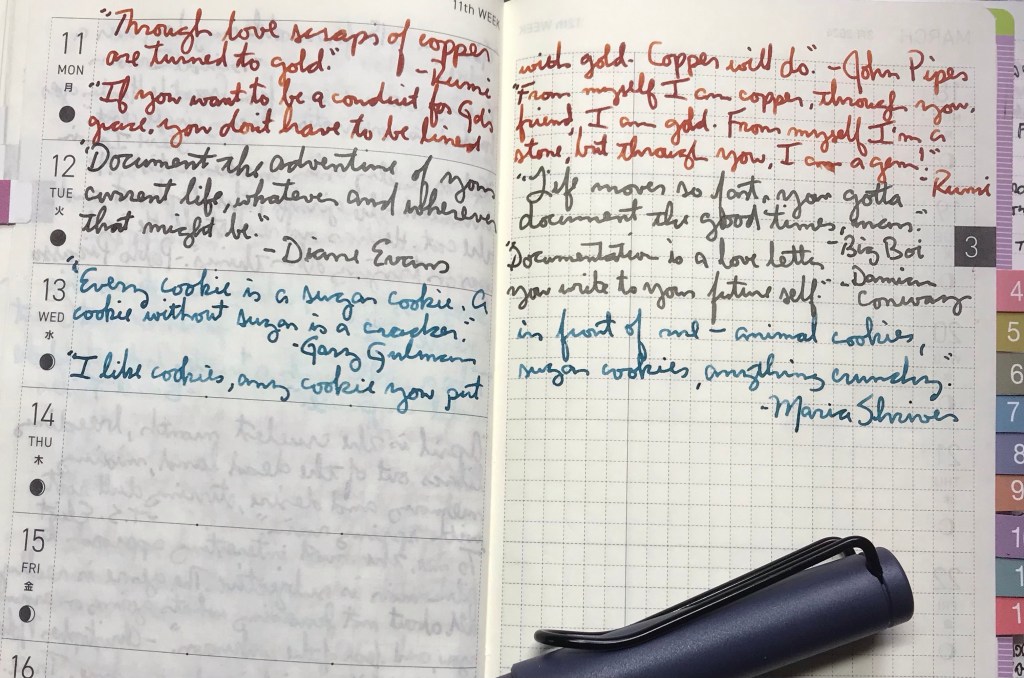 11th WEEK
11
MON
月
"Through love scraps of copper
are turned to gold."
-Rumi
"If you want to be a conduit for God's
grace, you don't have to be lined
12
TUE
火
"Document the adventure of your
current life, whatever and wherever
that might be."
-Diane Evans
13
WED
水
"Every cookie is a sugar cookie. A
cookie without sugar is a cracker."
-Gary Gulman
"I like cookies, any cookie you put
14
THU
木
15
FRI
金
16
with gold. Copper will do." -John Piper
"From myself I am copper, through you,
friend, I am gold. From myself I'm a
stone, but through you, I am a gem!"
-Rumi
"Life moves so fast, you gotta
document the good times, man."
-Big Boi
"Documentation is a love letter
you write to your future self." -Damian
Conway
in front of me - animal cookies,
sugar cookies, anything crunchy."
-Maria Shriver
3
4
5
6
7
8
9